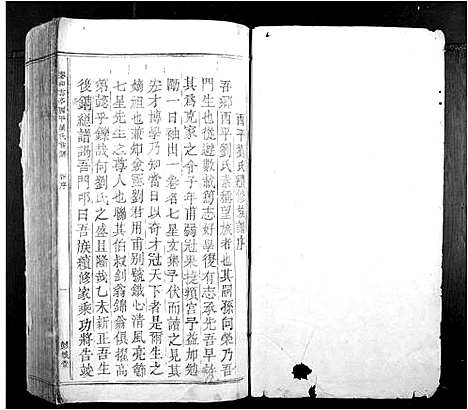 酉平劉氏續修族譜序
吾鄉酉平劉氏素稱望族者也其嗣孫向榮乃吾
門生也從遊數載篤志好學復有志承先吾早
其爲克家之令子年甫弱冠果掇類宮予益加勉
勵一日袖出一卷名七星文集予伏而讀之見其
宏才博學乃知奇才冠天下問之是爾生之
嫡祖也並知僉憲劉君用甫別號鐵心清風亮節
七星先生之尊人也聯其伯叔劍翁錦翁俱擢高
第懿乎鑠哉何劉氏之盛且隆哉乙未新正吾生
後錦總譜謁吾門叩曰吾族續修家乘功將告竣
序
一
彭城堂